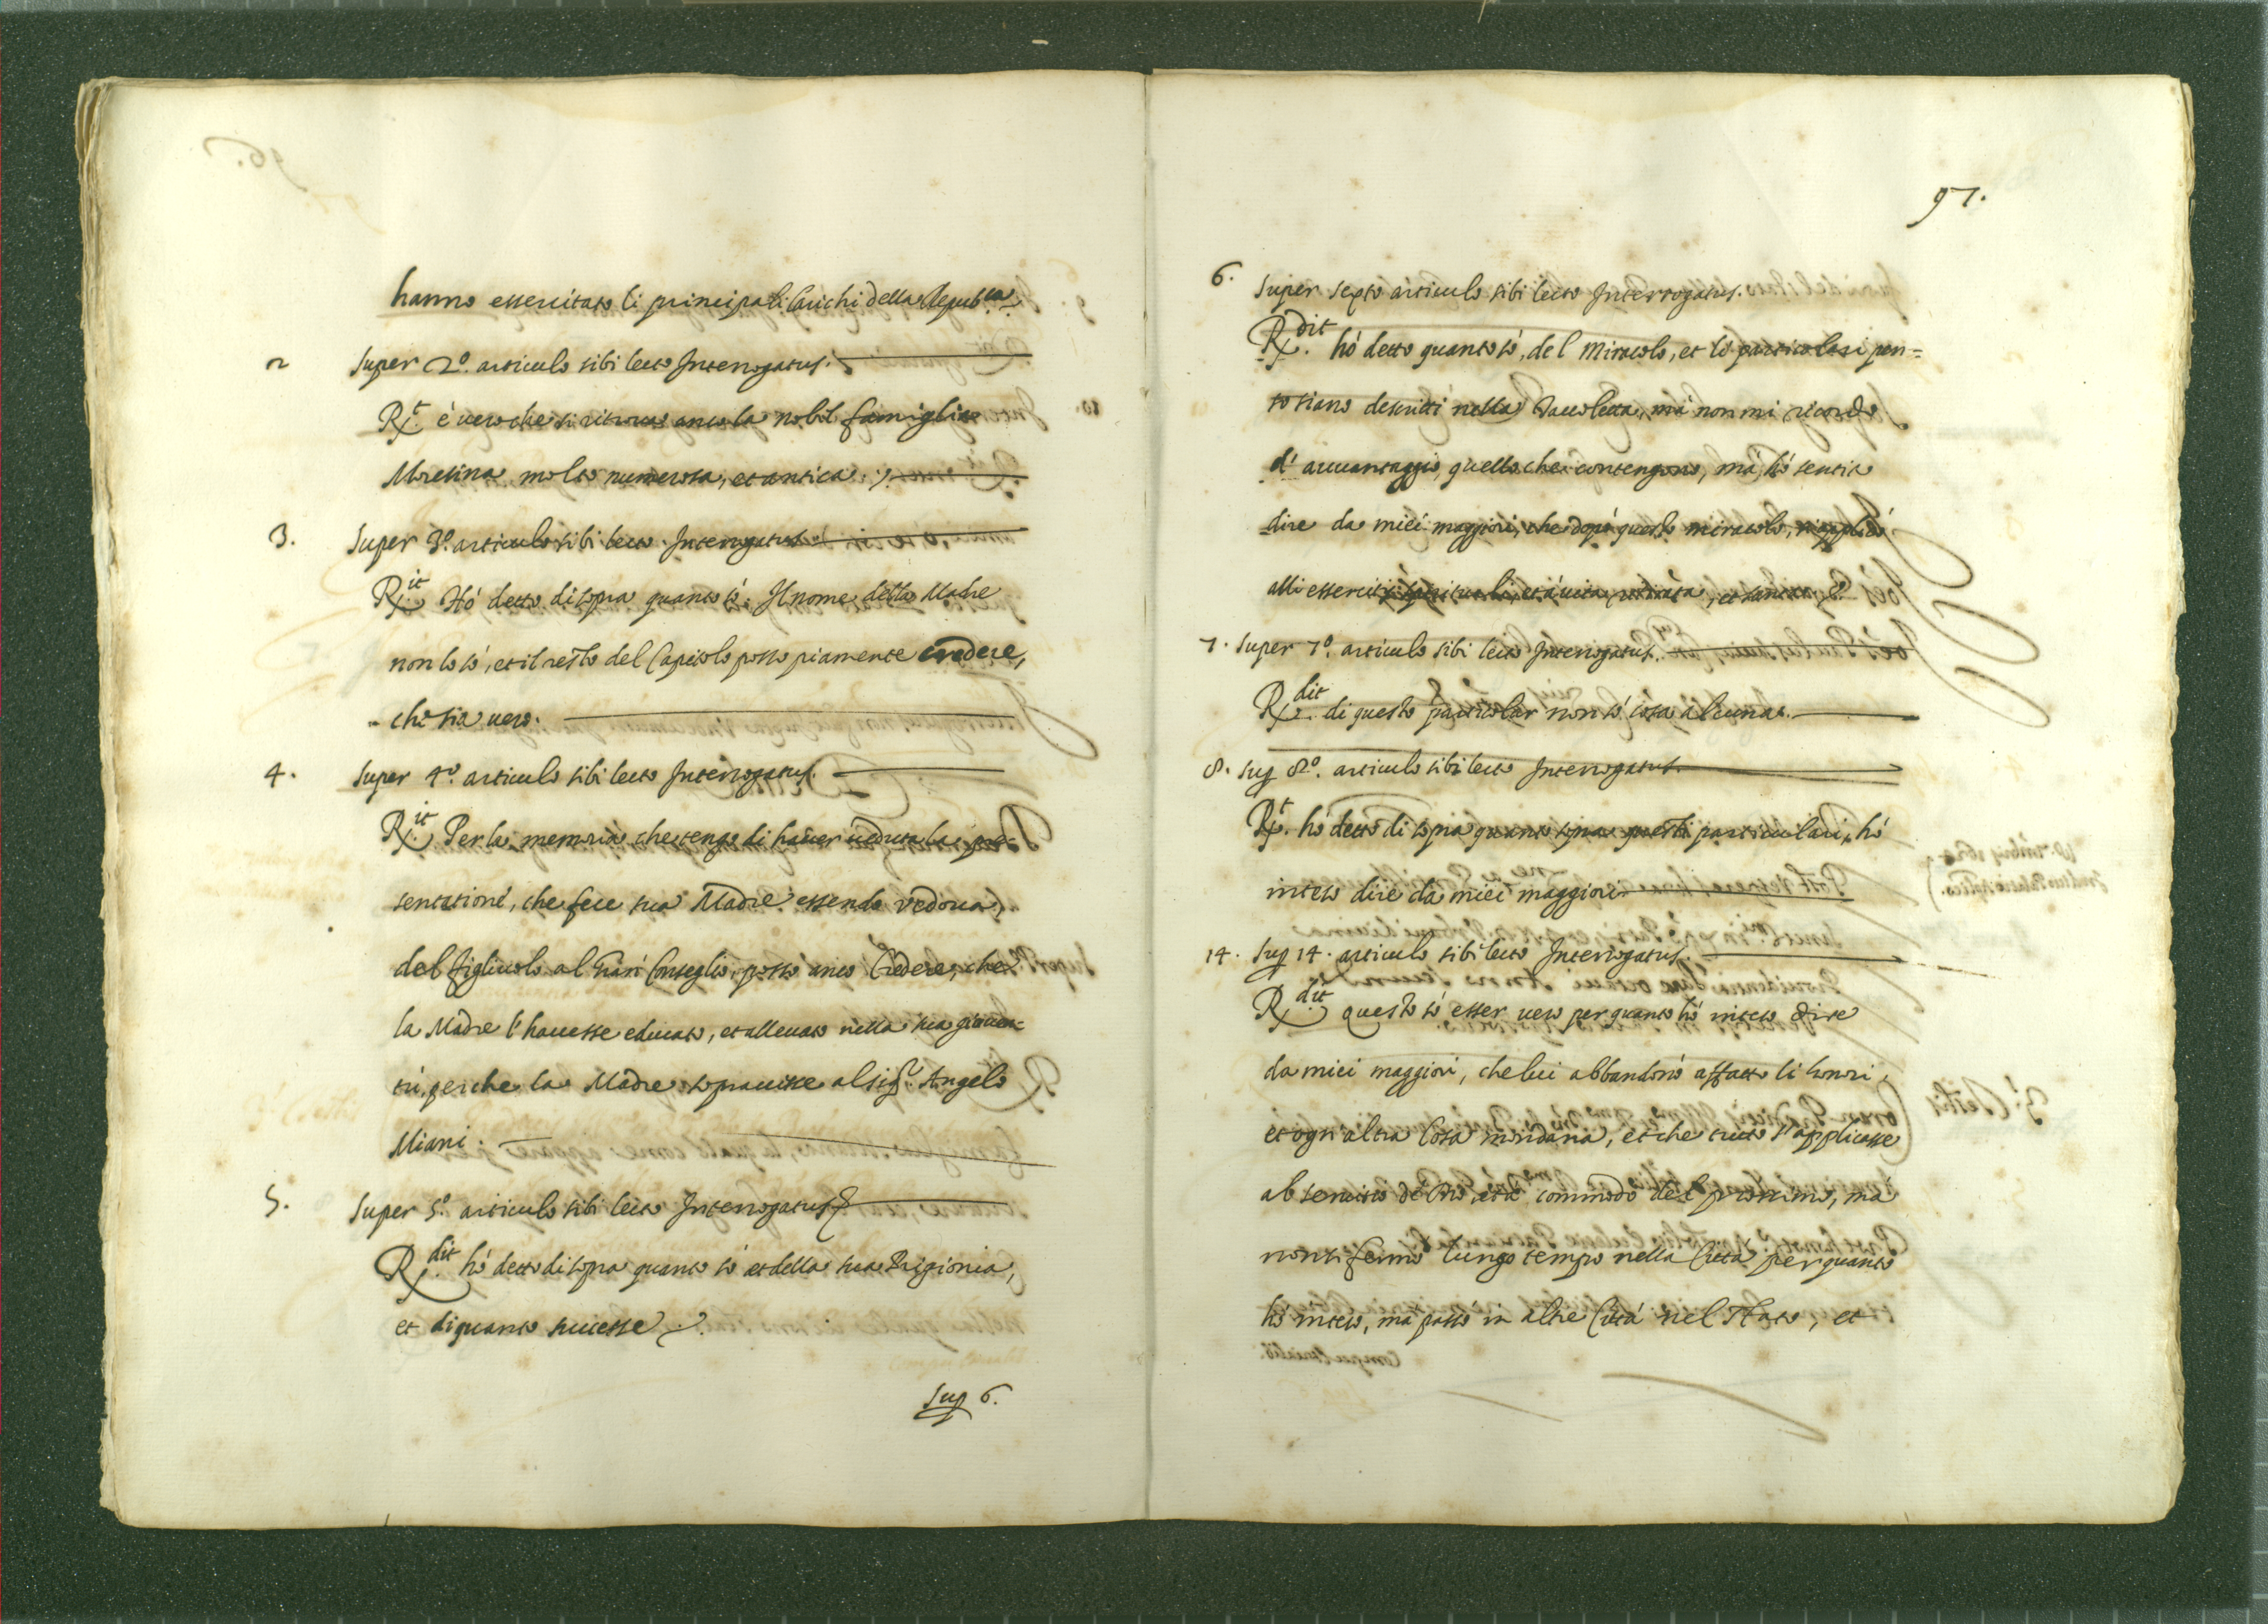 hanno essercitato li principali Carichi della Repub.ca
2 Super 2.º articulo sibi lecto Interrogatus.
R.t è vero che si ritrova anco la nobil famiglia
Moresina molto numerosa, et antica.
3. Super 3.º articulo sibi lecto Interrogatus
R.it Hò detto di sopra quanto sò. Il nome della Madre
non lo sò, et il resto del Capitolo posso piamente credere,
che sia vero.
4. Super 4.º articulo sibi lecto Interrogatus.
R.it Per la memoria che tengo di haver veduta la pre-
sentatione, che fece sua Madre essendo vedova,
del figliuolo al Gran Conseglio, posso anco Credere, che
la Madre l'havesse educato, et allevato nella sua gioven-
tù, perche la Madre sopravisse al sig.r Angelo
Miani.
5. Super 5.º articulo sibi lecto Interrogatus
R.dit hò detto di sopra quanto sò et della sua Prigionia,
et di quanto successe.
Sup 6.
97.
6. Super sexto articulo sibi lecto Interrogatus.
R.dit hò detto quanto sò, del Miracolo, et li particolari pon-
to siano descritti nella Tavoletta, mà non mi ricordo
d'avvantaggio, quello che contengono, mà hò sentito
dire da miei maggiori, che dopò questo miracolo, s'applicò
alli essercitij spirituali, et à vita ritirata, et santa.
7. Super 7.º articulo sibi lecto Interrogatus.
R.dit di questo particolar non sò cosa alcuna.
8. Sup 8.º articulo sibi lecto Interrogatus.
R.t hò detto di sopra quanto sopra questi particulari, hò
inteso dire da miei maggiori
14. Sup 14. articulo sibi lecto Interrogatus.
R.dit questo sò esser vero per quanto hò inteso dire
da miei maggiori, che lui abbandonò affatto li honori,
et ogn altra Cosa mondana, et che tutto s'applicasse
al servitio de Dio, et à commodo del prossimo, mà
non si fermò lungo tempo nella Città per quanto
hò inteso, mà passò in altre Città nel Stato, et